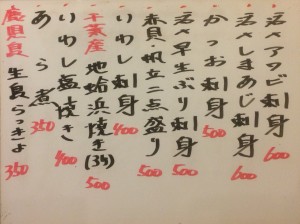 活〆アワビ刺身 600
活〆しまあじ刺身 600
かつお刺身 500
活〆早生ぶり刺身 500
春貝・帆立二点盛り 500
いわし刺身 400
千葉産 地蛤浜焼き(3ヶ) 500
いわし塩焼き 400
あら煮 350
鹿児島 生島らっきょ 350